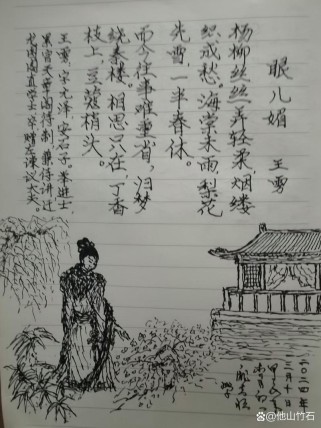 眼儿媚 王雱
杨柳丝丝弄轻柔，烟缕
织成愁。海棠未雨，梨花
先雪，一半春休。
而今往事难重省，归梦
绕秦楼。相思只在，丁香
枝上，豆蔻梢头。
王雱，字元泽，安石子。举进士，
累官天章阁待制兼侍讲，迁
龙图阁直学士，卒赠左谏议大夫。
二〇二四年
三月十日
@他山竹石